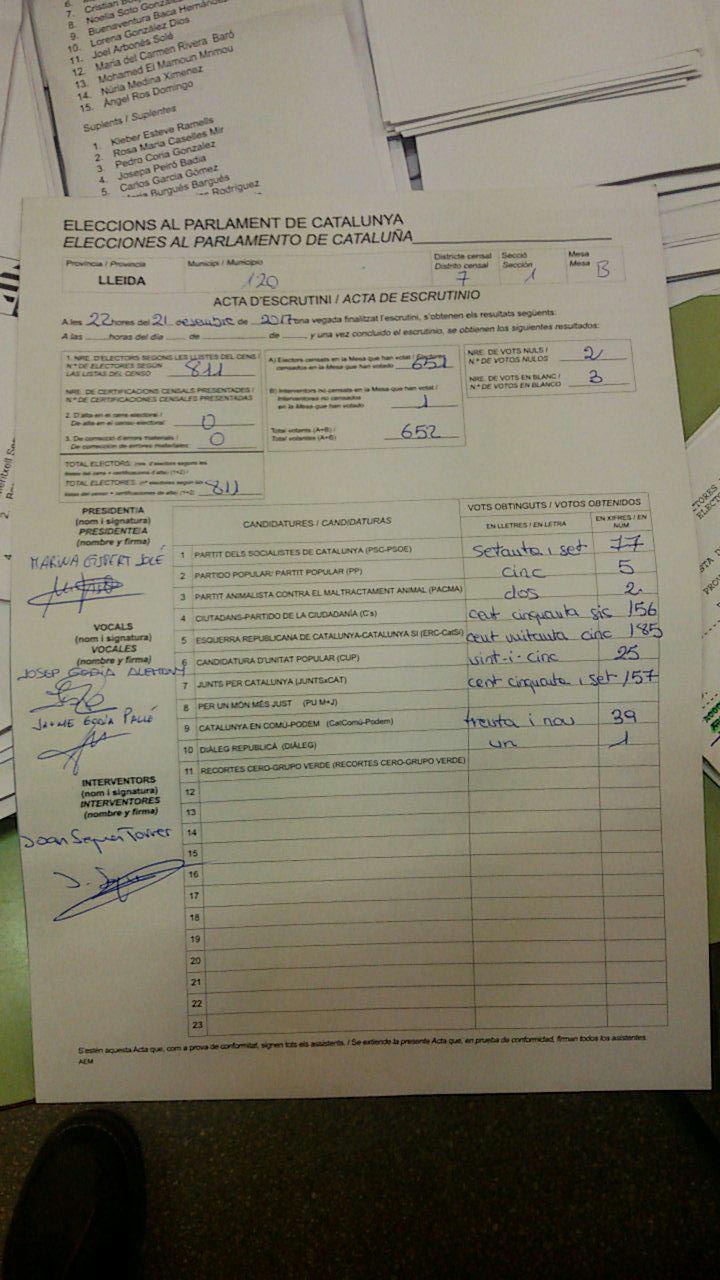 7. Cristian
8. Noelia Soto González
9. Buenaventura Baca Hernández
10. Lorena González Dios
11. Joel Arbonés Solé
12. María del Carmen Rivera Baró
13. Mohamed El Mamoun Mrimou
14. Núria Medina Ximenez
15. Àngel Ros Domingo
Suplents / Suplentes
1. Kleber Esteve Ramells
2. Rosa Maria Caselles Mir
3. Pedro Coria Gonzalez
4. Josepa Peiró Badia
5. Carlos García Gómez
Burgués Bargués
Rodríguez
ELECCIONS AL PARLAMENT DE CATALUNYA
ELECCIONES AL PARLAMENTO DE CATALUÑA
Província / Provincia Municipi / Municipio Districte censal Secció Mesa
Distrito censal Sección Mesa
LLEIDA 120 7 1 B
ACTA D'ESCRUTINI / ACTA DE ESCRUTINIO
A les 22 hores del 21 desembre de 2017 una vegada finalitzat l'escrutini, s'obtenen els resultats següents:
A las ____ horas del día ____ de ____ de ____, y una vez concluido el escrutinio, se obtienen los siguientes resultados:
1. NRE. D'ELECTORS SEGONS LES LLISTES DEL CENS /
N.º DE ELECTORES SEGÚN
LAS LISTAS DEL CENSO 811
NRE. DE CERTIFICACIONS CENSALS PRESENTADES /
N.º DE CERTIFICACIONES CENSALES PRESENTADAS
2. D'alta en el cens electoral /
De alta en el censo electoral: 0
3. De correcció d'errors materials /
De corrección de errores materiales: 0
TOTAL ELECTORS: (nre. d'electors segons les
llistes del cens + certificacions d'alta) (1+2) /
TOTAL ELECTORES: (nº electores según las
listas del censo + certificaciones de alta) (1+2) 811
A) Electors censats en la Mesa que han votat / Electores
censados en la Mesa que han votado 651
B) Interventors no censats en la Mesa que han votat /
Interventores no censados
en la Mesa que han votado 1
Total votants (A+B) /
Total votantes (A+B) 652
NRE. DE VOTS NULS /
N.º DE VOTOS NULOS 2
NRE. DE VOTS EN BLANC /
N.º DE VOTOS EN BLANCO 3
PRESIDENT/A
(nom i signatura)
PRESIDENTE/A
(nombre y firma)
MARINA GIBERT JOLÉ
VOCALS
(nom i signatura)
VOCALES
(nombre y firma)
JOSEP GODIA ALEMANY
JAUME GODIA PALLÉ
INTERVENTORS
(nom i signatura)
INTERVENTORES
(nombre y firma)
Joan Torrer
CANDIDATURES / CANDIDATURAS VOTS OBTINGUTS / VOTOS OBTENIDOS
EN LLETRES / EN LETRA EN XIFRES / EN NUM
1 PARTIT DELS SOCIALISTES DE CATALUNYA (PSC-PSOE) setanta i set 77
2 PARTIDO POPULAR/ PARTIT POPULAR (PP) cinc 5
3 PARTIT ANIMALISTA CONTRA EL MALTRACTAMENT ANIMAL (PACMA) dos 2
4 CIUTADANS-PARTIDO DE LA CIUDADANÍA (C's) cent cinquanta sis 156
5 ESQUERRA REPUBLICANA DE CATALUNYA-CATALUNYA SÍ (ERC-CatSí) cent vuitanta cinc 185
6 CANDIDATURA D'UNITAT POPULAR (CUP) vint-i-cinc 25
7 JUNTS PER CATALUNYA (JUNTSxCAT) cent cinquanta i set 157
8 PER UN MÓN MÉS JUST (PU M+J)
9 CATALUNYA EN COMÚ-PODEM (CatComú-Podem) trenta i nou 39
10 DIÀLEG REPUBLICÀ (DIÀLEG) un 1
11 RECORTES CERO-GRUPO VERDE (RECORTES CERO-GRUPO VERDE)
12
13
14
15
16
17
18
19
20
21
22
23
S'estén aquesta Acta que, com a prova de conformitat, signen tots els assistents. / Se extiende la presente Acta que, en prueba de conformidad, firman todos los asistentes
AEM